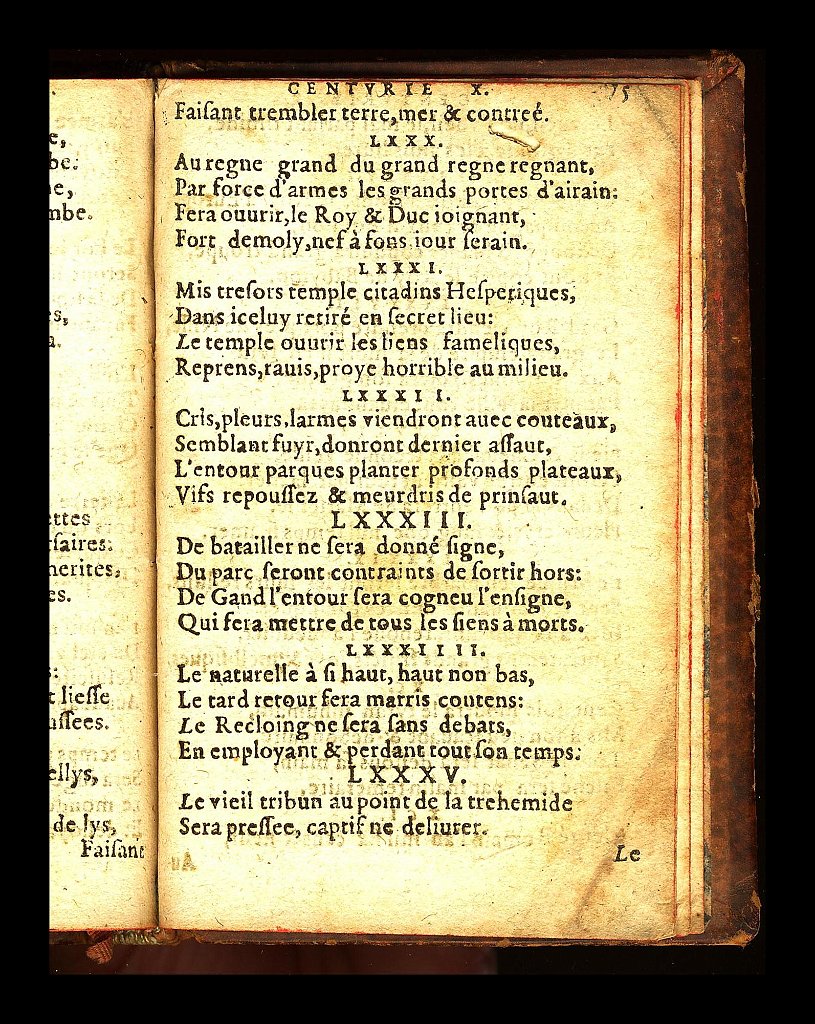 e,
be:
ne,
mbe.
es,
a.
ettes
rſaires:
nerites,
es.
s:
t lieſſe
uſſees.
ellys,
de lys,
Faiſant
CENTVRIE X. 75
Faiſant trembler terre,mer & contreé.
LXXX.
Au regne grand du grand regne regnant,
Par force d'armes les grands portes d'airain:
Fera ouurir,le Roy & Duc ioignant,
Fort demoly,nef à fons iour ſerain.
LXXXI.
Mis treſors temple citadins Heſperiques,
Dans iceluy retiré en ſecret lieu:
Le temple ouurir les liens fameliques,
Reprens,rauis,proye horrible au milieu.
LXXXII.
Cris,pleurs,larmes viendront auec couteaux,
Semblant fuyr,donront dernier aſſaut,
L'entour parques planter profonds plateaux,
Vifs repouſſez & meurdris de prinſaut.
LXXXIII.
De batailler ne ſera donné ſigne,
Du parc ſeront contraints de ſortir hors:
De Gand l'entour ſera cogneu l'enſigne,
Qui fera mettre de tous les ſiens à morts.
LXXXIIII.
Le naturelle à ſi haut, haut non bas,
Le tard retour fera marris contens:
Le Recloing ne ſera ſans debats,
En employant & perdant tout ſon temps:
LXXXV.
Le vieil tribun au point de la trehemide
Sera preſſee, captif ne deliurer.
Le